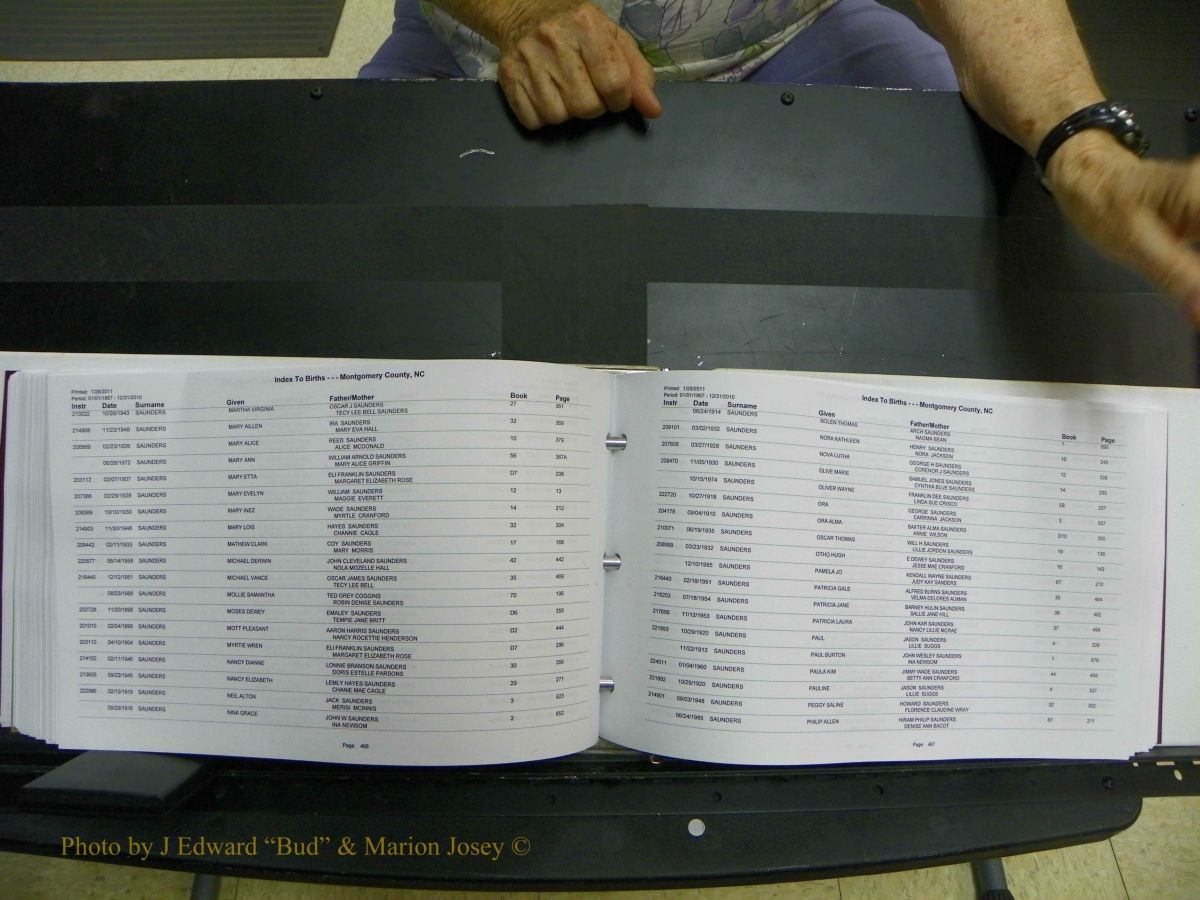 Index To Births - - - Montgomery County, NC
Printed: 1/28/2011
Period: 01/01/1867 - 12/31/2010
Instr Date Surname Given Father/Mother Book Page
213022 10/26/1943 SAUNDERS MARTHA VIRGINIA OSCAR J SAUNDERS 27 361
TECY LEE BELL SAUNDERS
214968 11/23/1948 SAUNDERS MARY AILLEN IRA SAUNDERS 32 369
MARY EVA HALL
206889 02/23/1926 SAUNDERS MARY ALICE REED SAUNDERS 10 379
ALICE MCDONALD
06/28/1972 SAUNDERS MARY ANN WILLIAM ARNOLD SAUNDERS 56 367A
MARY ALICE GRIFFIN
203112 02/07/1907 SAUNDERS MARY ETTA ELI FRANKLIN SAUNDERS D7 298
MARGARET ELIZABETH ROSE
207386 02/29/1928 SAUNDERS MARY EVELYN WILLIAM SAUNDERS 12 13
MAGGIE EVERETT
208389 10/10/1930 SAUNDERS MARY INEZ WADE SAUNDERS 14 212
MYRTLE CRANFORD
214903 11/30/1948 SAUNDERS MARY LOIS HAYES SAUNDERS 32 304
CHANNIE CAGLE
209442 02/11/1933 SAUNDERS MATHEW CLARK COY SAUNDERS 17 168
MARY MORRIS
220577 06/14/1958 SAUNDERS MICHAEL DERWIN JOHN CLEVELAND SAUNDERS 42 442
NOLA MOZELLE HALL
216445 12/12/1951 SAUNDERS MICHAEL VANCE OSCAR JAMES SAUNDERS 35 469
TECY LEE BELL
08/23/1988 SAUNDERS MOLLIE SAMANTHA TED GREY COGGINS 70 196
ROBIN DENISE SAUNDERS
202728 11/20/1898 SAUNDERS MOSES DEWEY EMALEY SAUNDERS D6 359
TEMFIE JANE BRITT
201010 02/04/1899 SAUNDERS MOTT PLEASANT AARON HARRIS SAUNDERS D2 444
NANCY ROCETTIE HENDERSON
203110 04/10/1904 SAUNDERS MYRTIE WREN ELI FRANKLIN SAUNDERS D7 296
MARGARET ELIZABETH ROSE
214102 02/11/1946 SAUNDERS NANCY DIANNE LONNIE BRANSON SAUNDERS 30 356
DORIS ESTELLE PARSONS
213655 09/23/1945 SAUNDERS NANCY ELIZABETH LEMLY HAYES SAUNDERS 29 271
CHANIE MAE CAGLE
222986 02/13/1919 SAUNDERS NEIL ALTON JACK SAUNDERS 3 623
MERISI MCINNIS
09/29/1916 SAUNDERS NINA GRACE JOHN W SAUNDERS 2 652
INA NEWSOM
Page 466
Index To Births - - - Montgomery County, NC
Printed: 1/28/2011
Period: 01/01/1867 - 12/31/2010
Instr Date Surname Given Father/Mother Book Page
06/24/1914 SAUNDERS NOLEN THOMAS ARCH SAUNDERS 1 690
NAOMA BEAN
209101 03/02/1932 SAUNDERS NORA KATHLEEN HENRY SAUNDERS 16 245
NORA JACKSON
207608 03/27/1928 SAUNDERS NOVA LUTHA GEORGE H SAUNDERS 12 238
CORENOR J SAUNDERS
208470 11/05/1930 SAUNDERS OLIVE MARIE SAMUEL JONES SAUNDERS 14 293
CYNTHIA BLUE SAUNDERS
10/15/1974 SAUNDERS OLIVER WAYNE FRANKLIN DEE SAUNDERS 58 257
LINDA SUE CRISCO
222720 10/27/1918 SAUNDERS ORA GEORGE SAUNDERS 3 657
CARRINNA JACKSON
204178 09/04/1910 SAUNDERS ORA ALMA BAXTER ALMA SAUNDERS D10 305
ANNIE WILSON
210071 06/19/1935 SAUNDERS OSCAR THOMAS WILL H SAUNDERS 19 138
LILLIE JORDON SAUNDERS
208999 03/23/1932 SAUNDERS OTHO HUGH E DEWEY SAUNDERS 16 143
JESSE MAE CRANFORD
12/10/1985 SAUNDERS PAMELA JO KENDALL WAYNE SAUNDERS 67 210
JUDY KAY SANDERS
216440 02/18/1951 SAUNDERS PATRICIA GALE ALFRED BURNS SAUNDERS 35 464
VELMA DELORES AUMAN
218203 07/18/1954 SAUNDERS PATRICIA JANE BARNEY HULIN SAUNDERS 38 482
SALLIE JANE HILL
217656 11/12/1953 SAUNDERS PATRICIA LAURA JOHN KAR SAUNDERS 37 494
NANCY LILLIE MCRAE
221893 10/29/1920 SAUNDERS PAUL JASON SAUNDERS 4 338
LILLIE SUGGS
11/22/1913 SAUNDERS PAUL BURTON JOHN WESLEY SAUNDERS 1 578
INA NEWSOM
224011 01/04/1960 SAUNDERS PAULA KIM JIMMY WADE SAUNDERS 44 405
BETTY ANN CRANFORD
221892 10/29/1920 SAUNDERS PAULINE JASON SAUNDERS 4 337
LILLIE SUGGS
214901 09/03/1948 SAUNDERS PEGGY SALINE HOWARD SAUNDERS 32 302
FLORENCE CLAUDINE WRAY
06/24/1985 SAUNDERS PHILIP ALLEN HIRAM PHILIP SAUNDERS 67 211
DENISE ANN BACOT
Page 467
Photo by J Edward “Bud” & Marion Josey ©